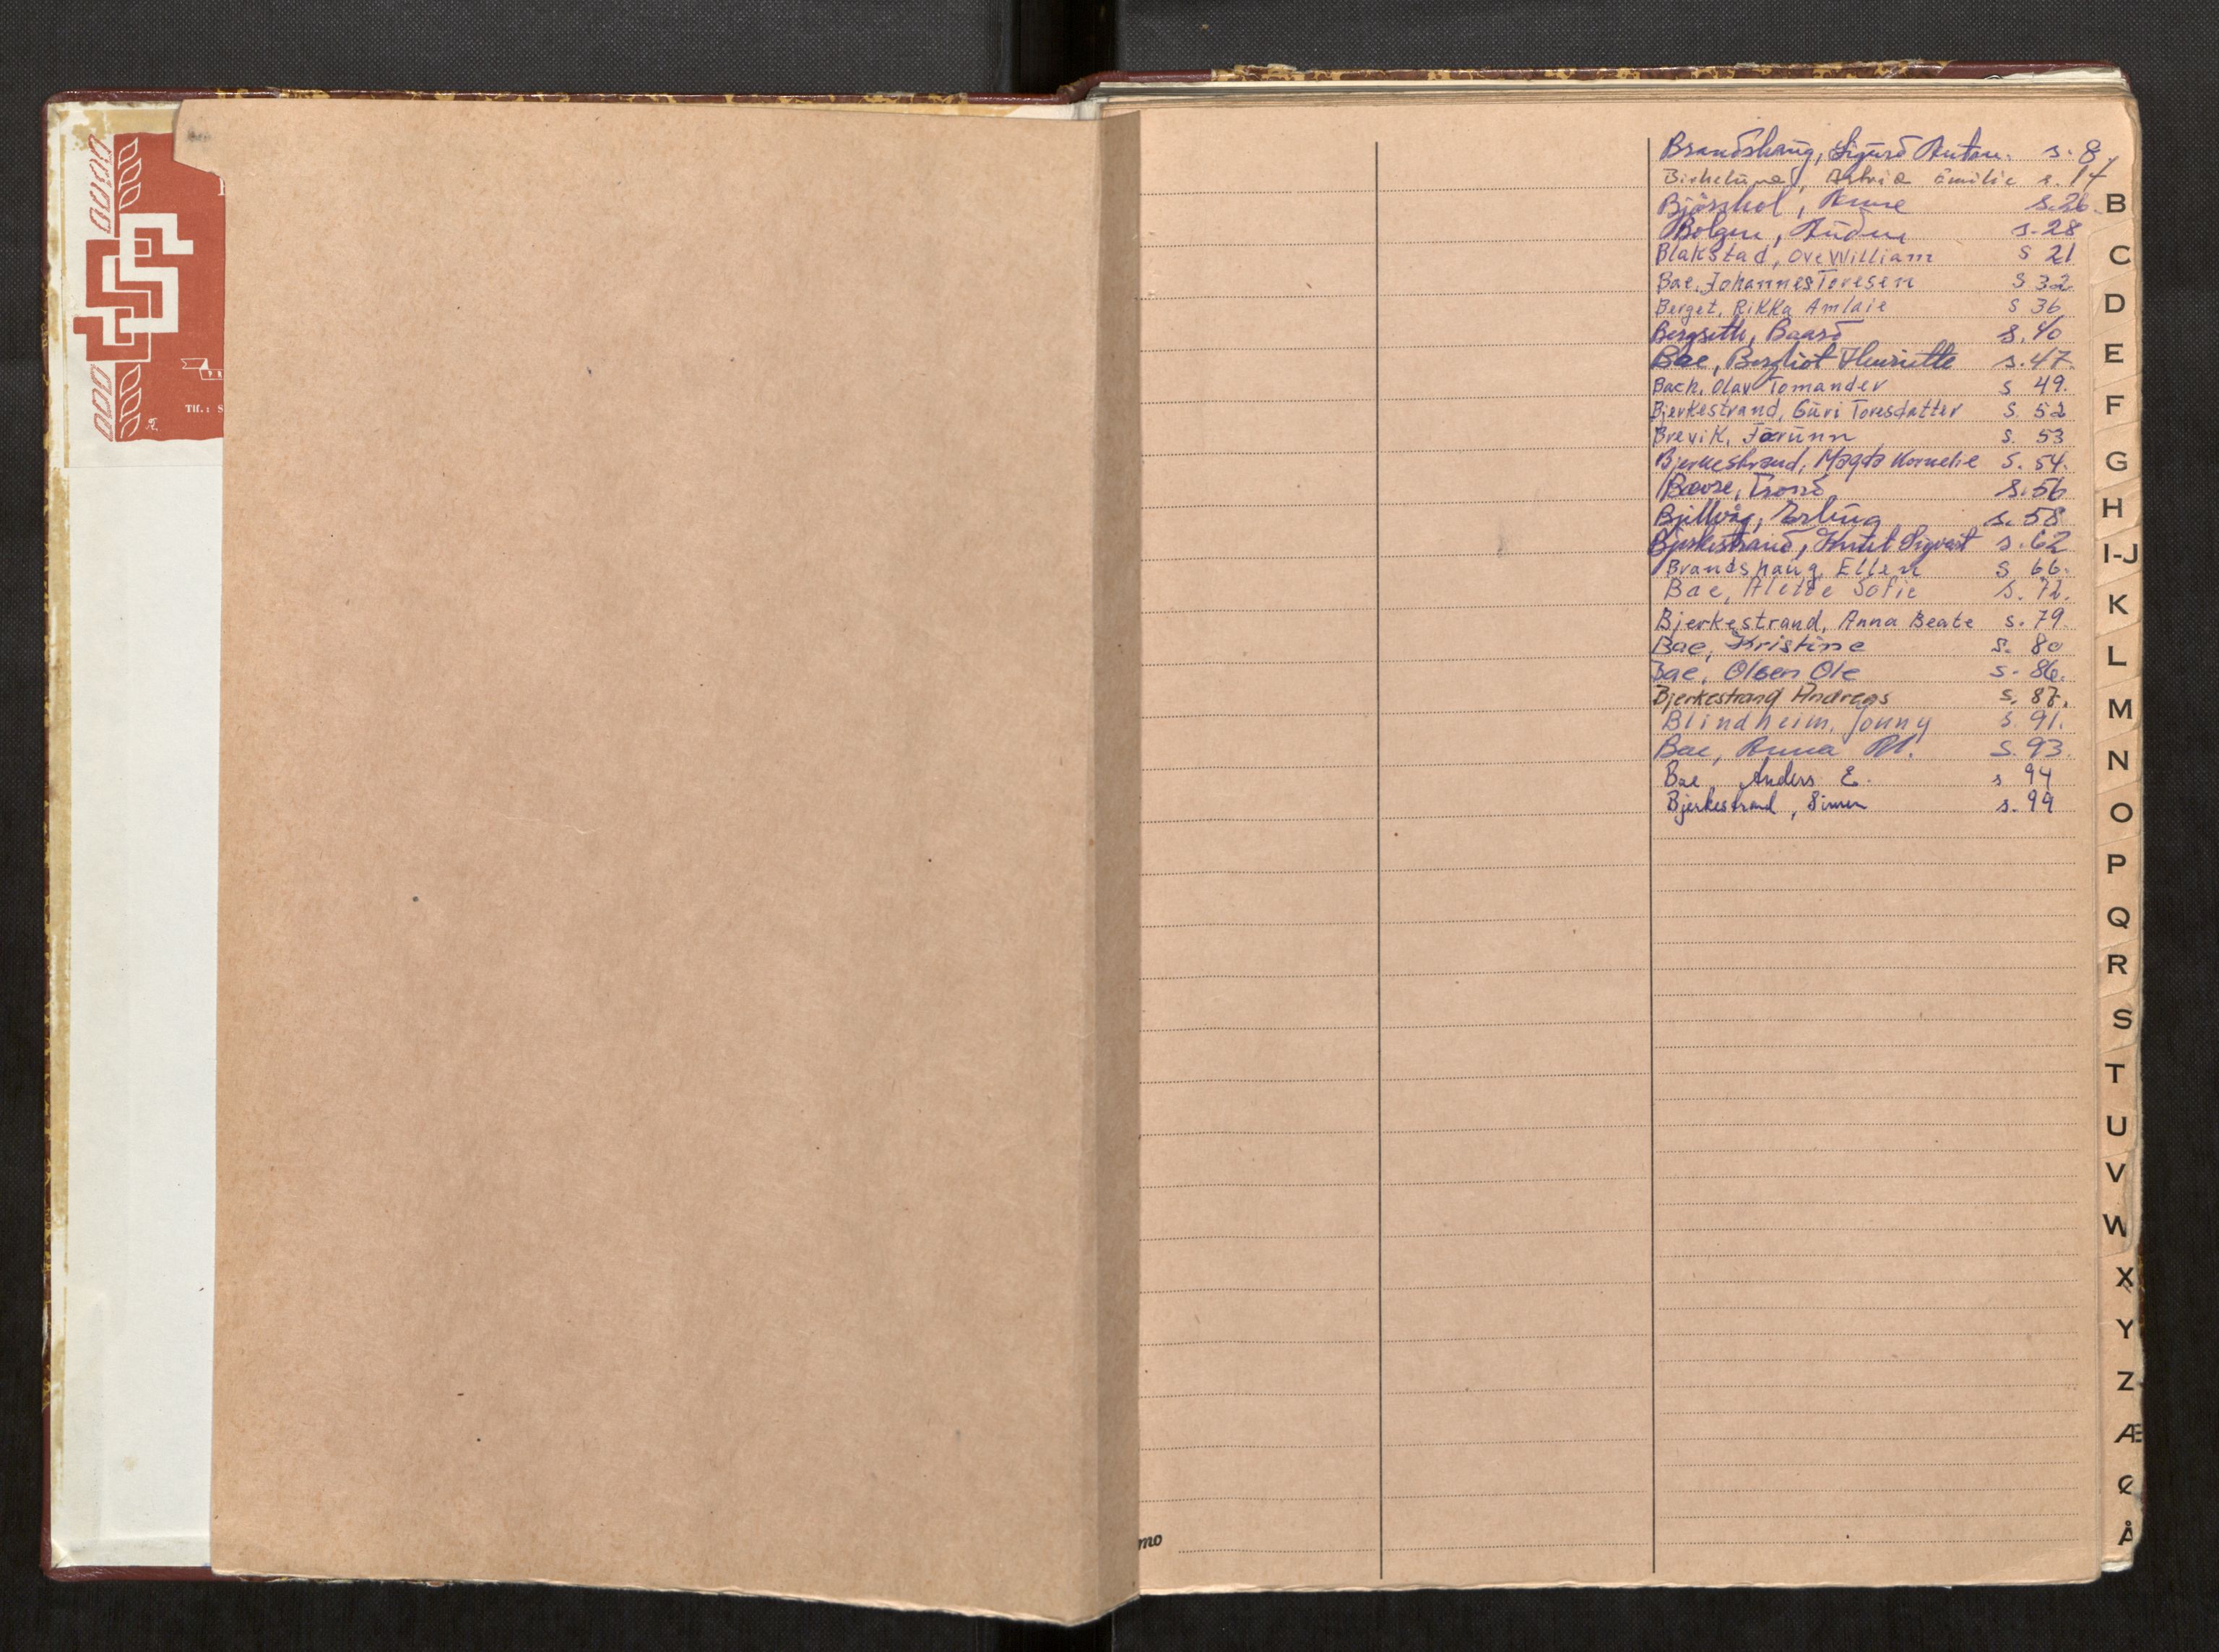 Tlf.: S
mo
Brandshaug, Sigurd Anton. s. 8
Birkelund, Astrid Emilie s. 17
Bjørshol, Anne s. 26.
Bolgen, Audun s. 28
Blakstad, Ove William s 21
Bae, Johannes Toresen s 32
Berget, Rikka Amlaie s 36
Bergseth, Baard s. 40
Bae, Bergliot Henriette s. 47.
Bach, Olav Tomander s 49.
Bjerkestrand, Guri Toresdatter s. 52
Brevik, Jorunn s. 53
Bjerkestrand, Magda Kornelie s. 54.
Bævre, Trond s. 56
Bjellvåg, Erling s. 58
Bjerkestrand, Sigvart s. 62
Brandshaug, Ellen s 66.
Bae, Alette Sofie s. 72.
Bjerkestrand, Anna Beate s. 79.
Bae, Kristine s. 80
Bae, Olsen Ole s. 86.
Bjerkestrand Andreas s. 87.
Blindheim, Jonny s. 91.
Bae, Anna M. s. 93.
Bae Anders E. s 94
Bjerkestrand, Simen s. 99
B
C
D
E
F
G
H
I-J
K
L
M
N
O
P
Q
R
S
T
U
V
W
X
Y
Z
Æ
Ø
Å